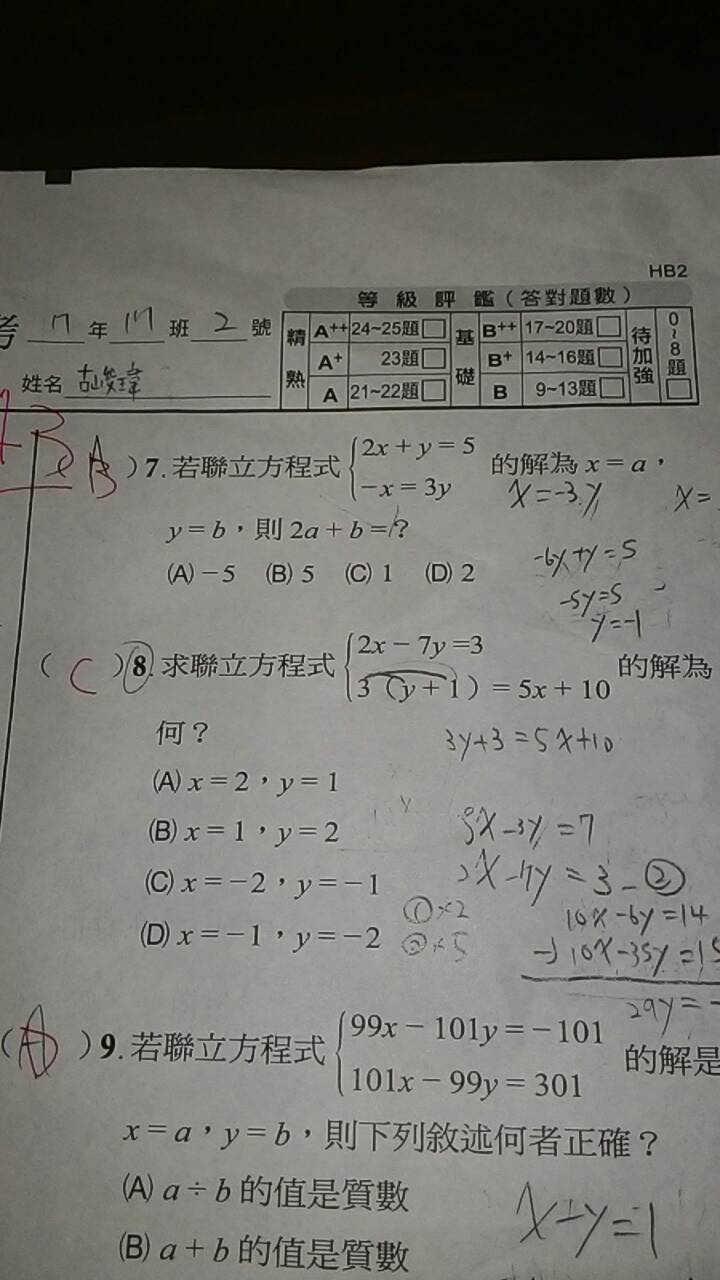 HB2
等級評鑑(答對題數)
精熟 A++ 24~25題 基礎 B++ 17~20題 待加強 0~8題
A+ 23題 B+ 14~16題
A 21~22題 B 9~13題
考 年 班 2 號
姓名
)7.若聯立方程式 2x+y=5 的解為x=a,
-x=3y
x=-3y x=
y=b,則2a+b=?
-6y+y=5
(A)-5 (B)5 (C)1 (D)2
-5y=5
y=-1
( C )8.求聯立方程式 2x-7y=3 的解為
3(y+1)=5x+10
何?
3y+3=5x+10
(A)x=2,y=1
(B)x=1,y=2
5x-3y=7
2x-7y=3-②
(C)x=-2,y=-1
①×2
10x-6y=14
(D)x=-1,y=-2
②×5
-)10x-35y=15
29y=-
( A )9.若聯立方程式 99x-101y=-101 的解是
101x-99y=301
x=a,y=b,則下列敘述何者正確?
(A)a÷b的值是質數
x-y=1
(B)a+b的值是質數